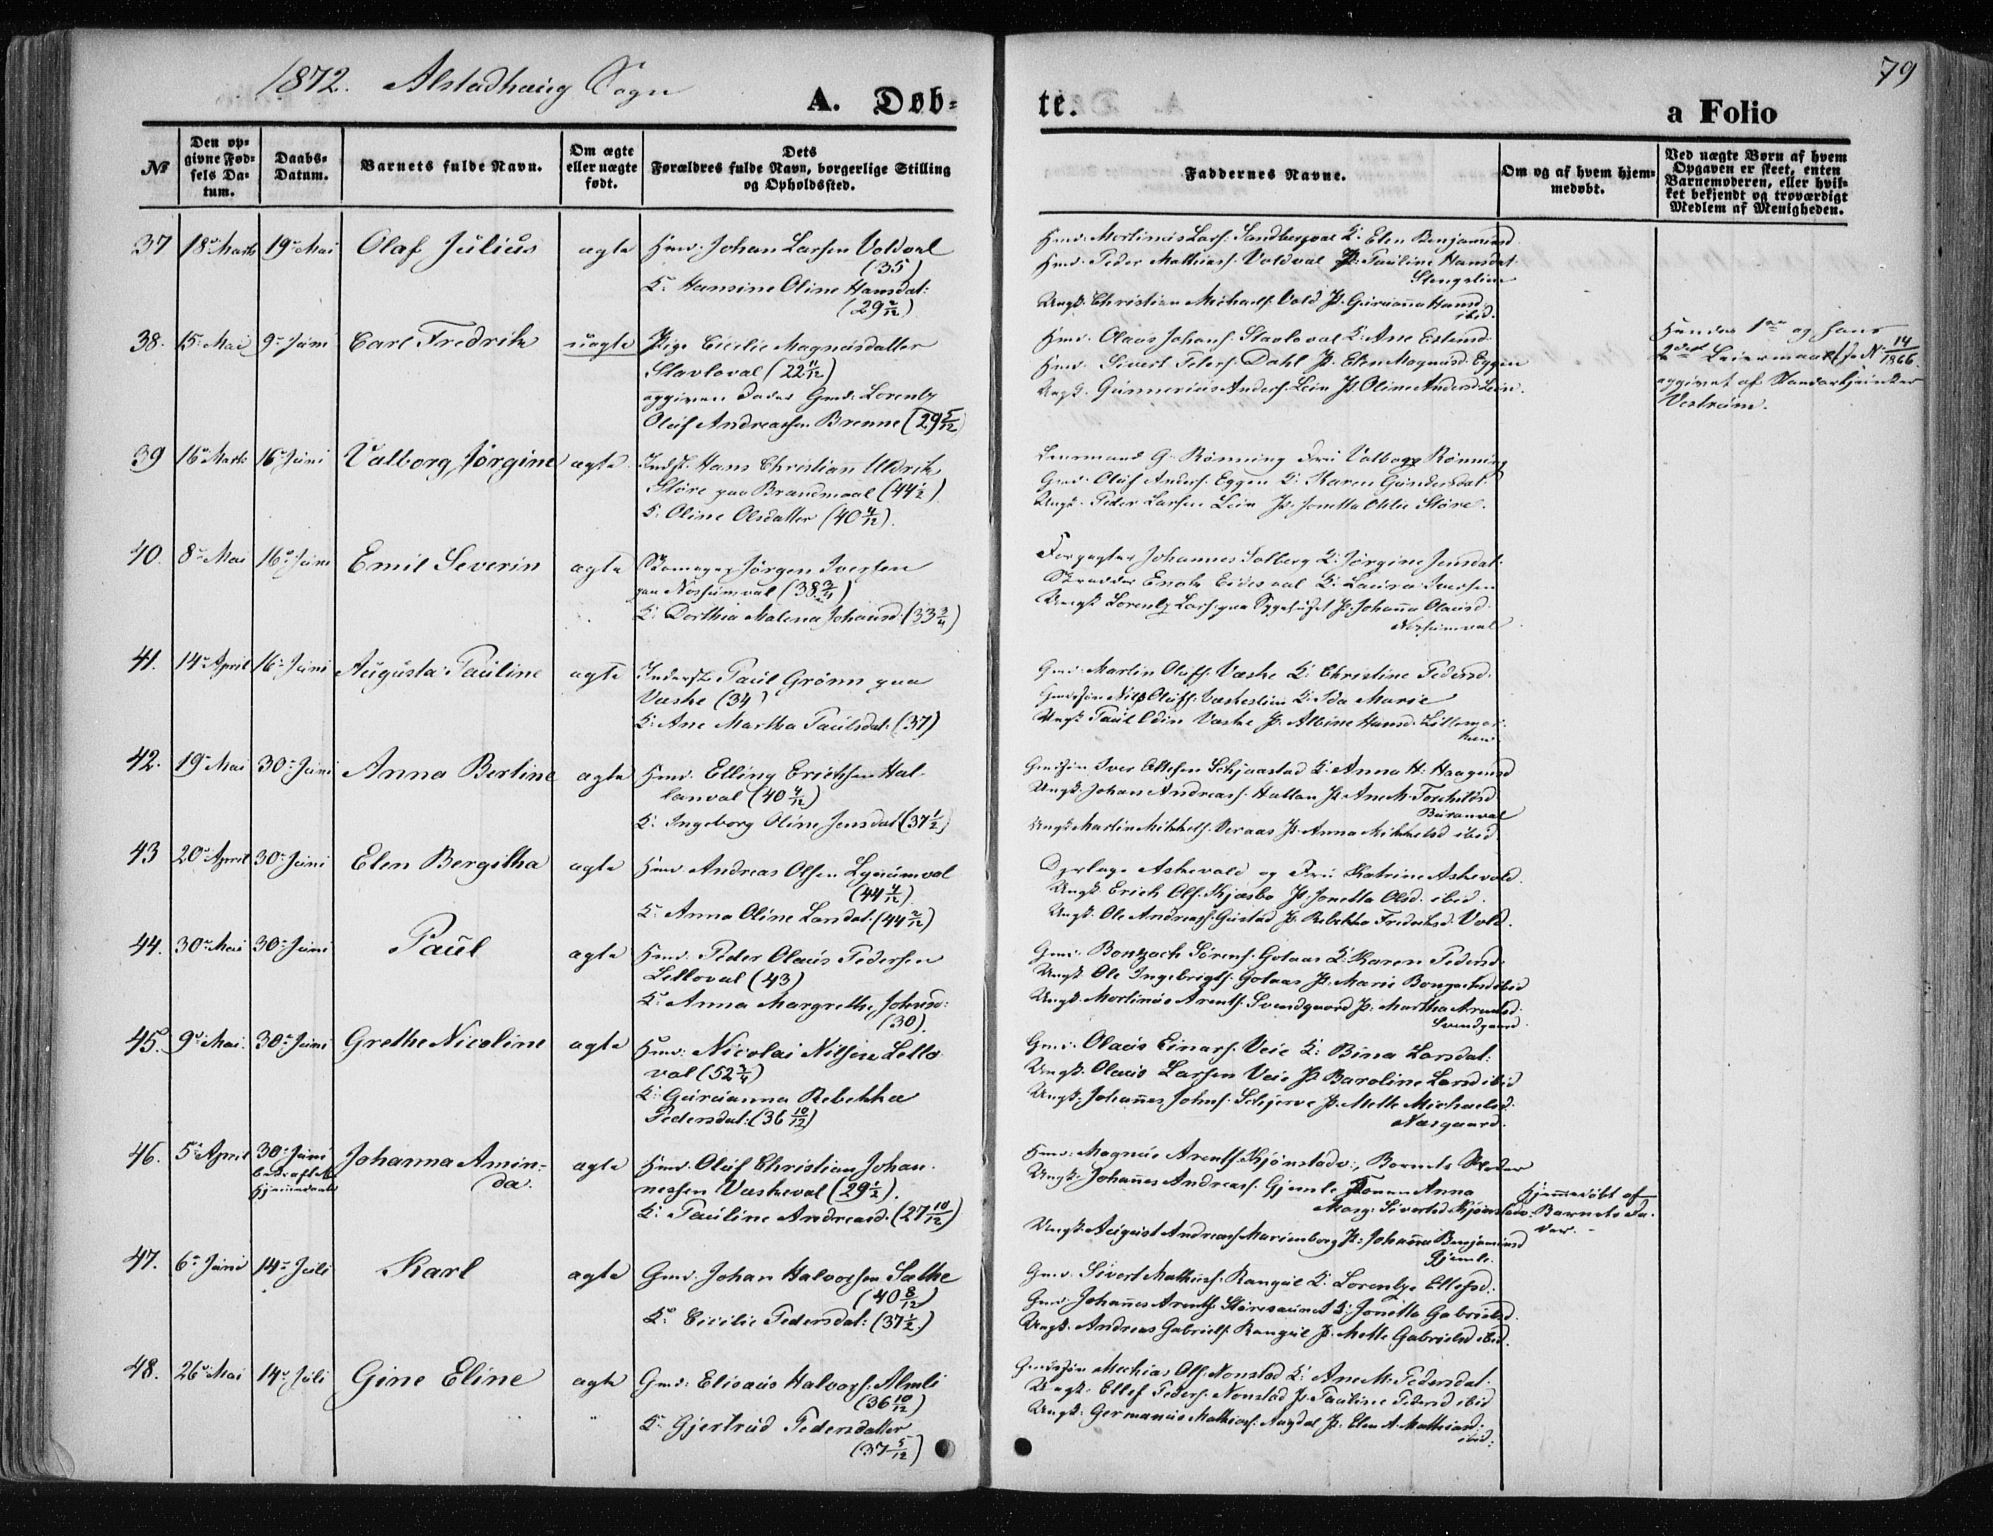 1872. Alstadhaug Sogn
79
A. Døb-
te.
a Folio
№
Den op-
givne Fød-
sels Da-
tum.
Daabs-
Datum.
Barnets fulde Navn.
Om ægte
eller uægte
født.
Dets
Forældres fulde Navn, borgerlige Stilling
og Opholdssted.
Faddernes Navne.
Om og af hvem hjem-
medøbt.
Ved uægte Børn af hvem
Opgaven er skeet, enten
Barnemoderen, eller hvil-
ket bekjendt og troværdigt
Medlem af Menigheden.
37 18 Marts 19 Mai Olaf Julius ægte Hmd. Johan Larsen Voldval
(35)
K. Hansine Oline Hansdat:
(29 2/12)
Hmd. Mortinus Lars. Sandbergval K. Elen Benjamind.
Hmd. Peder Mathias. Voldval P. Pauline Hansdat
Ungk. Christian Michaels. Vold P. Gurianna Hansd.
ibid.
38. 15 Mai 9 Juni Carl Fredrik uægte Pige Cicilie Magnusdatter
Stavloval (22 11/12)
opgiven Fader Gmd. Lorents
Oluf Andreassen Brenne (29 5/12)
Hmd. Olaus Johans. Stavloval K. Ane Estend.
Hmd. Sivert Peters. Dahl P. Elen Magnusd. Eggen
Ungk. Gunnerius Anders. Lein P. Oline Andersd. Lein.
Hendes 1ste og hans
2det Leiermaal (Jo N. 14/1866
opgivet af
Vestrum.
39 16 Marts 16 Juni Valborg Jørgine ægte Indst. Hans Christian Uldrik
Støre paa Brandmoal (44 1/2)
K. Oline Olsdatter (40 4/12).
Lensmand G. Rönning Fru Valborg Rönning
Gmd. Oluf Anders. Eggen K. Karen Gundersdat
Ungk. Peder Larsen Lein P. Jonetta Otilie Støre.
40. 8 Mai 16 Juni Emil Severin ægte Skomager Jörgen Iversen
paa Nossumval (38 3/4)
K. Dorthea Malena Johansd. (33 3/4)
Forpagter Johannes Solberg K. Jørgine Jensdat.
Skrædder Enok Eidesval K. Laura Iversen
Ungk. Lorents Lars. paa Sygehuset P. Johanna Olausd.
Nossumval
41. 14 April 16 Juni Augusta Pauline ægte Inderst Paul Grönn paa
Væske (34)
K. Ane Martha Paulsdat. (37)
Gmd. Martin Olufs. Væske K. Christine Pedersd.
Gmdssøn Nils Olufs. K. Ida Marie
Ungk. Paul Odin Væske P. Albine Hansd.
42. 19 Mai 30 Juni Anna Bertine ægte Hmd. Elling Erichsen Hal-
lanval (40 4/12)
K. Ingeborg Oline Jensdat (37 1/2)
Gmdssøn Iver Ottesen Schjaastad K. Anna H. Haagensd
Ungk. Johan Andreas. Hallan P. Ane M. Torkilsd.
Buranval
Ungk. Martin Mikkels. Veraas P. Anna Mikkelsd. ibid
43 20 April 30 Juni Elen Bergitha ægte Hmd Andreas Olsen Lynumval
(44 4/12).
K. Anna Oline Landat. (44 2/12)
Dyrlæge Askevold og Fru Katrine Askevold.
Ungk. Erich Ols. Kjæsbo P. Jonetta Olsd. ibid.
Ungk. Ole Andreas. Gustad P. Rebekka Frederiksd. Vold.
44. 30 Mai 30 Juni Paul ægte Hmd. Peder Olaus Pedersen
Lelloval (43)
K. Anna Margrethe Johnsd:
(30).
Gmd. Bonsach Sörens. Golaas K. Karen Pedersd.
Ungk. Ole Ingebrigts. Golaas P. Marie Bonsaksd ibid
Ungk. Mortinus Arents. Svendgaard P. Martha Arentsd.
Svendgaard
45. 9 Mai 30 Juni Grethe Nicoline ægte Hmd. Nicolai Nilsen Lello
val (52 3/4)
K. Gurianna Rebekka
Pedersdat. (36 10/12)
Gmd. Olaus Einars. Veie K. Bina Larsdat.
Ungk. Olaus Larsen Veie P. Baroline Larsd ibid
Ungk. Johannes Johns. Schjerve P. Mette Michaelsd.
Næsgaard.
46. 5 April 30 Juni
bekræftet
Hjemmedaab
Johanna Amin-
da. ægte Hmd. Oluf Christian Johan-
nessen Væskeval (29 1/2).
K. Pauline Andreasd. (27 10/12)
Hmd. Magnus Arents. Kjönstadv., Barnets Moder
Ungk. Johannes Andreas. Gjemle Konen Anna
Marg. Sivertsd. Kjönstadv.
Ungk. August Andreas. Marienborg P. Johanna Benjamind
Gjemle.
Hjemmedöbt af
Barnets Fa-
der.
47. 6 Juni 14 Juli Karl ægte Gmd. Johan Halvorsen Salthe
(40 8/12)
K. Cicilie Pedersdat: (37 1/2.)
Gmd. Sivert Mathias. Rangul K. Lorentze Ellefsd.
Gmd. Johannes Arents. K. Jonetta Gabrielsd.
Ungk. Andreas Gabriels. Rangul P. Mette Gabrielsd ibid.
48. 26 Mai 14 Juli Gine Eline ægte Gmd: Elisæus Halvors. Almli
(36 10/12)
K. Gjertrud Pedersdatter
(37 5/12)
Gmdssøn Mathias Ols. Nonstad K. Ane M. Pedersdat.
Ungk. Ellef Peders. Nonstad P. Pauline Pedersd ibid
Ungk. Germanus Mathias. P. Elen A. Mathiasd.
ibid.